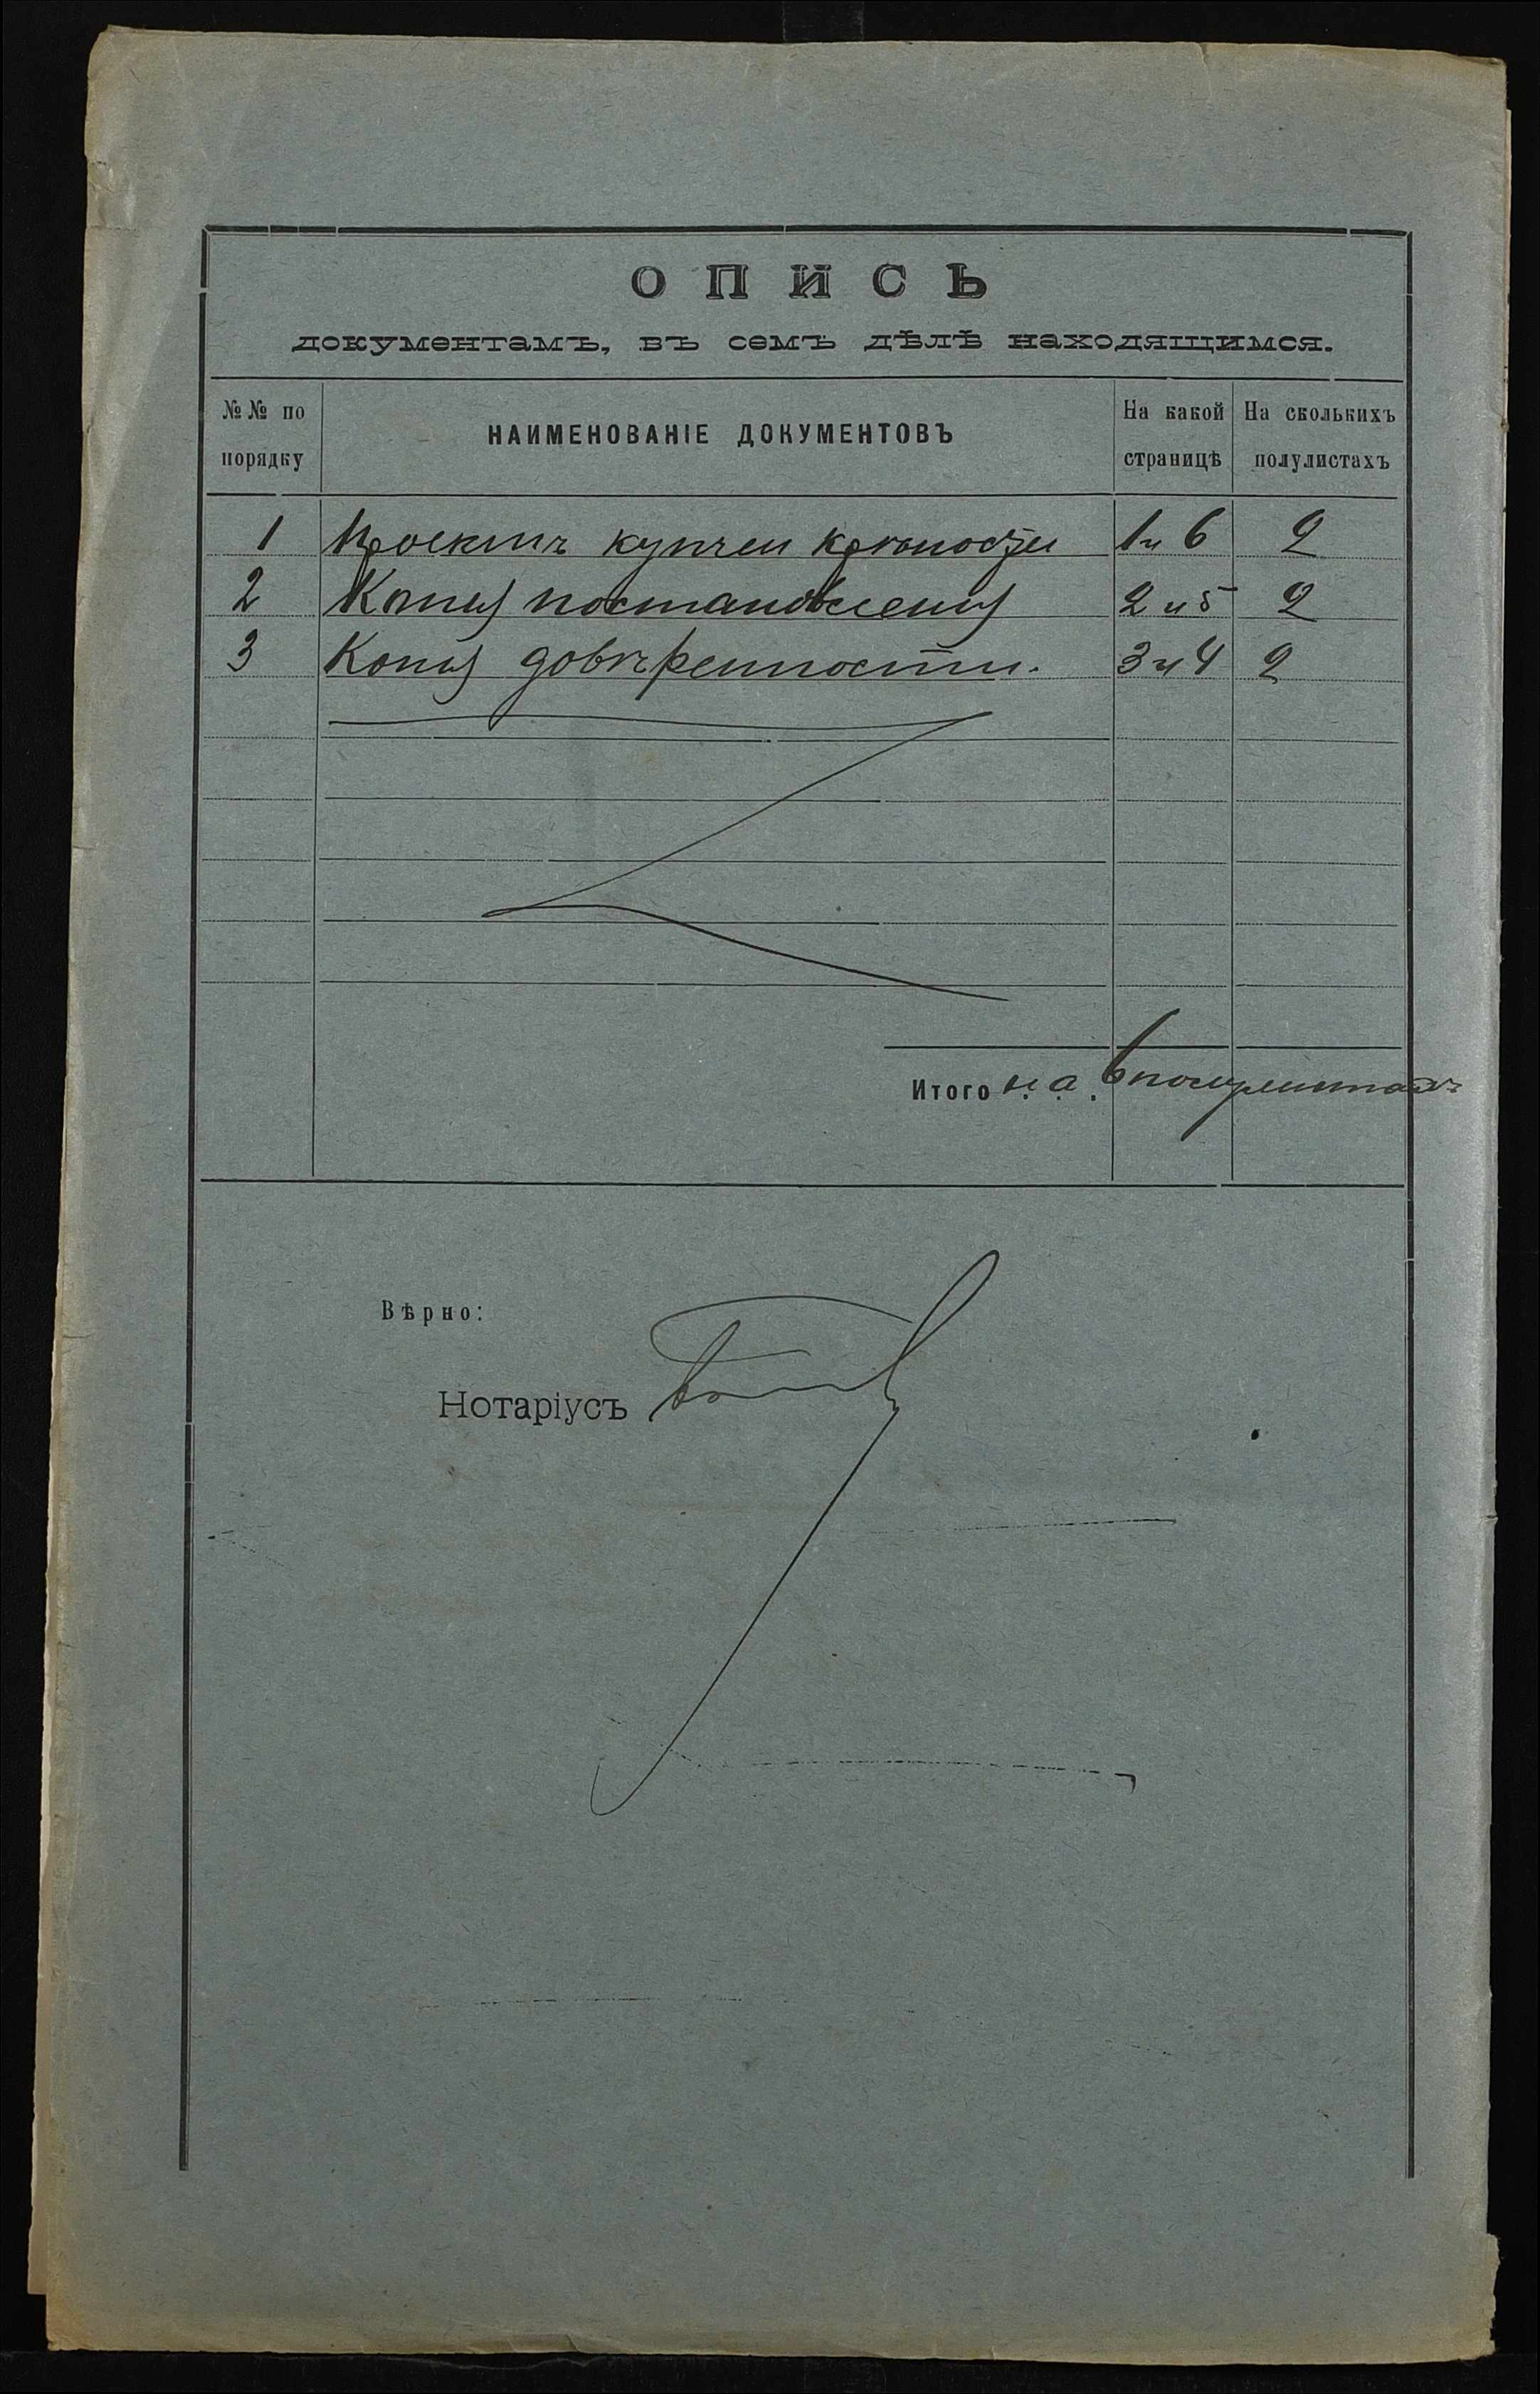 ОПИСЬ
документамъ, въ семъ дѣлѣ находящимся.
№№ по порядку
НАИМЕНОВАНІЕ ДОКУМЕНТОВЪ
На какой страницѣ
На сколькихъ полулистахъ
1 Проектъ купчей крѣпости 1 и 6 2
2 Копія постановленія 2 и 5 2
3 Копія довѣренности. 3 и 4 2
Итого на 6 полулистахъ
Вѣрно:
Нотаріусъ